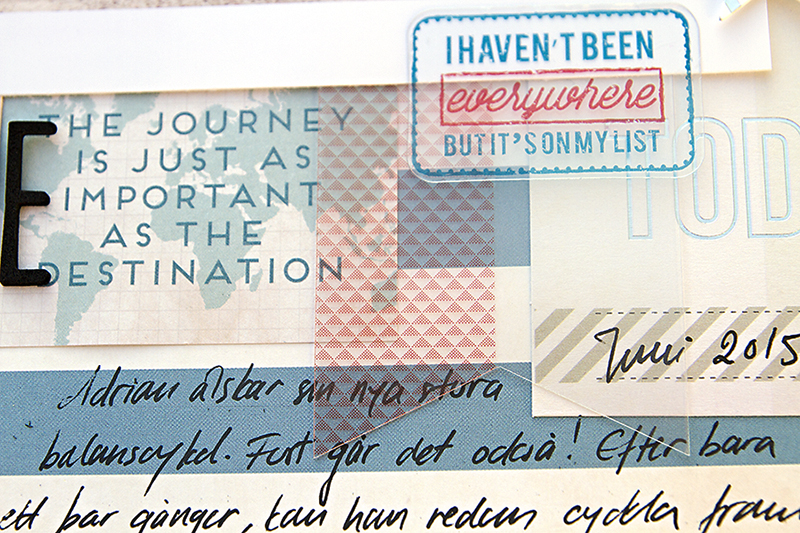 I HAVEN'T BEEN
everywhere
BUT IT'S ON MY LIST
E
THE JOURNEY
IS JUST AS
IMPORTANT
AS THE
DESTINATION
TOD
Juni 2015
Adrian älskar sin nya stora
balanscykel. Fort går det också! Efter bara
ett par gånger, kan han redan cykla fram